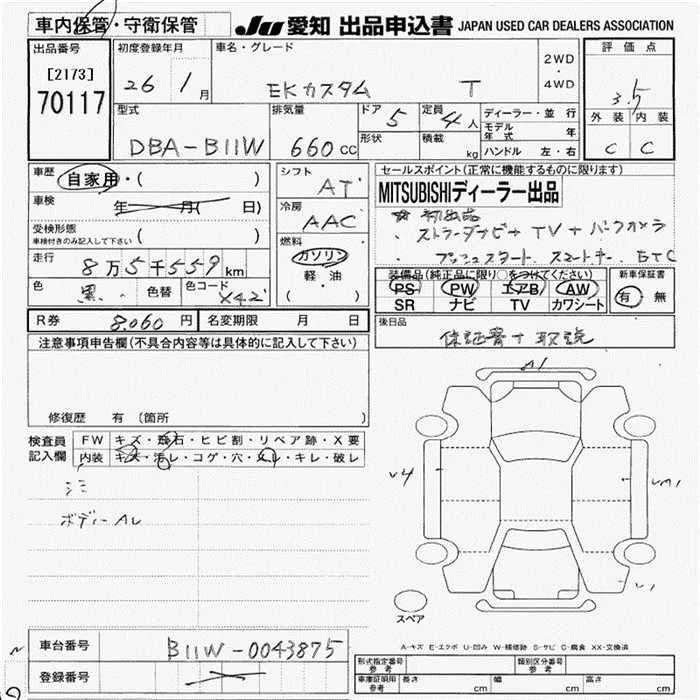 車内保管・守衛保管
JU 愛知 出品申込書 JAPAN USED CAR DEALERS ASSOCIATION
出品番号
[2173]
70117
初度登録年月
26 1 月
車名・グレード
EKカスタム T
2WD
4WD
評価点
3.5
外装 内装
C C
型式
DBA-B11W
排気量
660 cc
ドア 5
形状
定員 4 人
積載 kg
ディーラー・並行
モデル年式 年
ハンドル 左・右
車歴
自家用・( )
車検
年 月( 日)
受検形態
車検付きのみ記入して下さい ( )
走行
8万5千559 km
色
黒
色替
色コード
X42
シフト
AT
冷房
AAC
燃料
ガソリン
軽・油
( )
セールスポイント(正常に機能するものに限ります)
MITSUBISHIディーラー出品
☆ 初出品
・ストラーダナビ+TV+バックカメラ
・プッシュスタート スマートキー ETC
装備品(純正品に限り○をつけてください)
PS PW エアB AW
SR ナビ TV カワシート
新車保証書
有 無
R券 8.060 円
名変期限 月 日
後日品
保証書+取説
注意事項申告欄(不具合内容等は具体的に記入して下さい)
修復歴 有 (箇所
検査員記入欄
FW キズ・飛石・ヒビ割・リペア跡・X要
内装 キズ・汚レ・コゲ・穴・スレ・キレ・破レ
ボディーAL
A1
v4
U1
スペア
A-キズ E-エクボ U-凹み W-補修跡 S-サビ C-腐食 XX-交換済
車台番号
B11W-0043875
登録番号
形式指定番号 参考
類別区分番号 参考
車庫証明用 参考 長さ cm 幅 cm 高さ cm